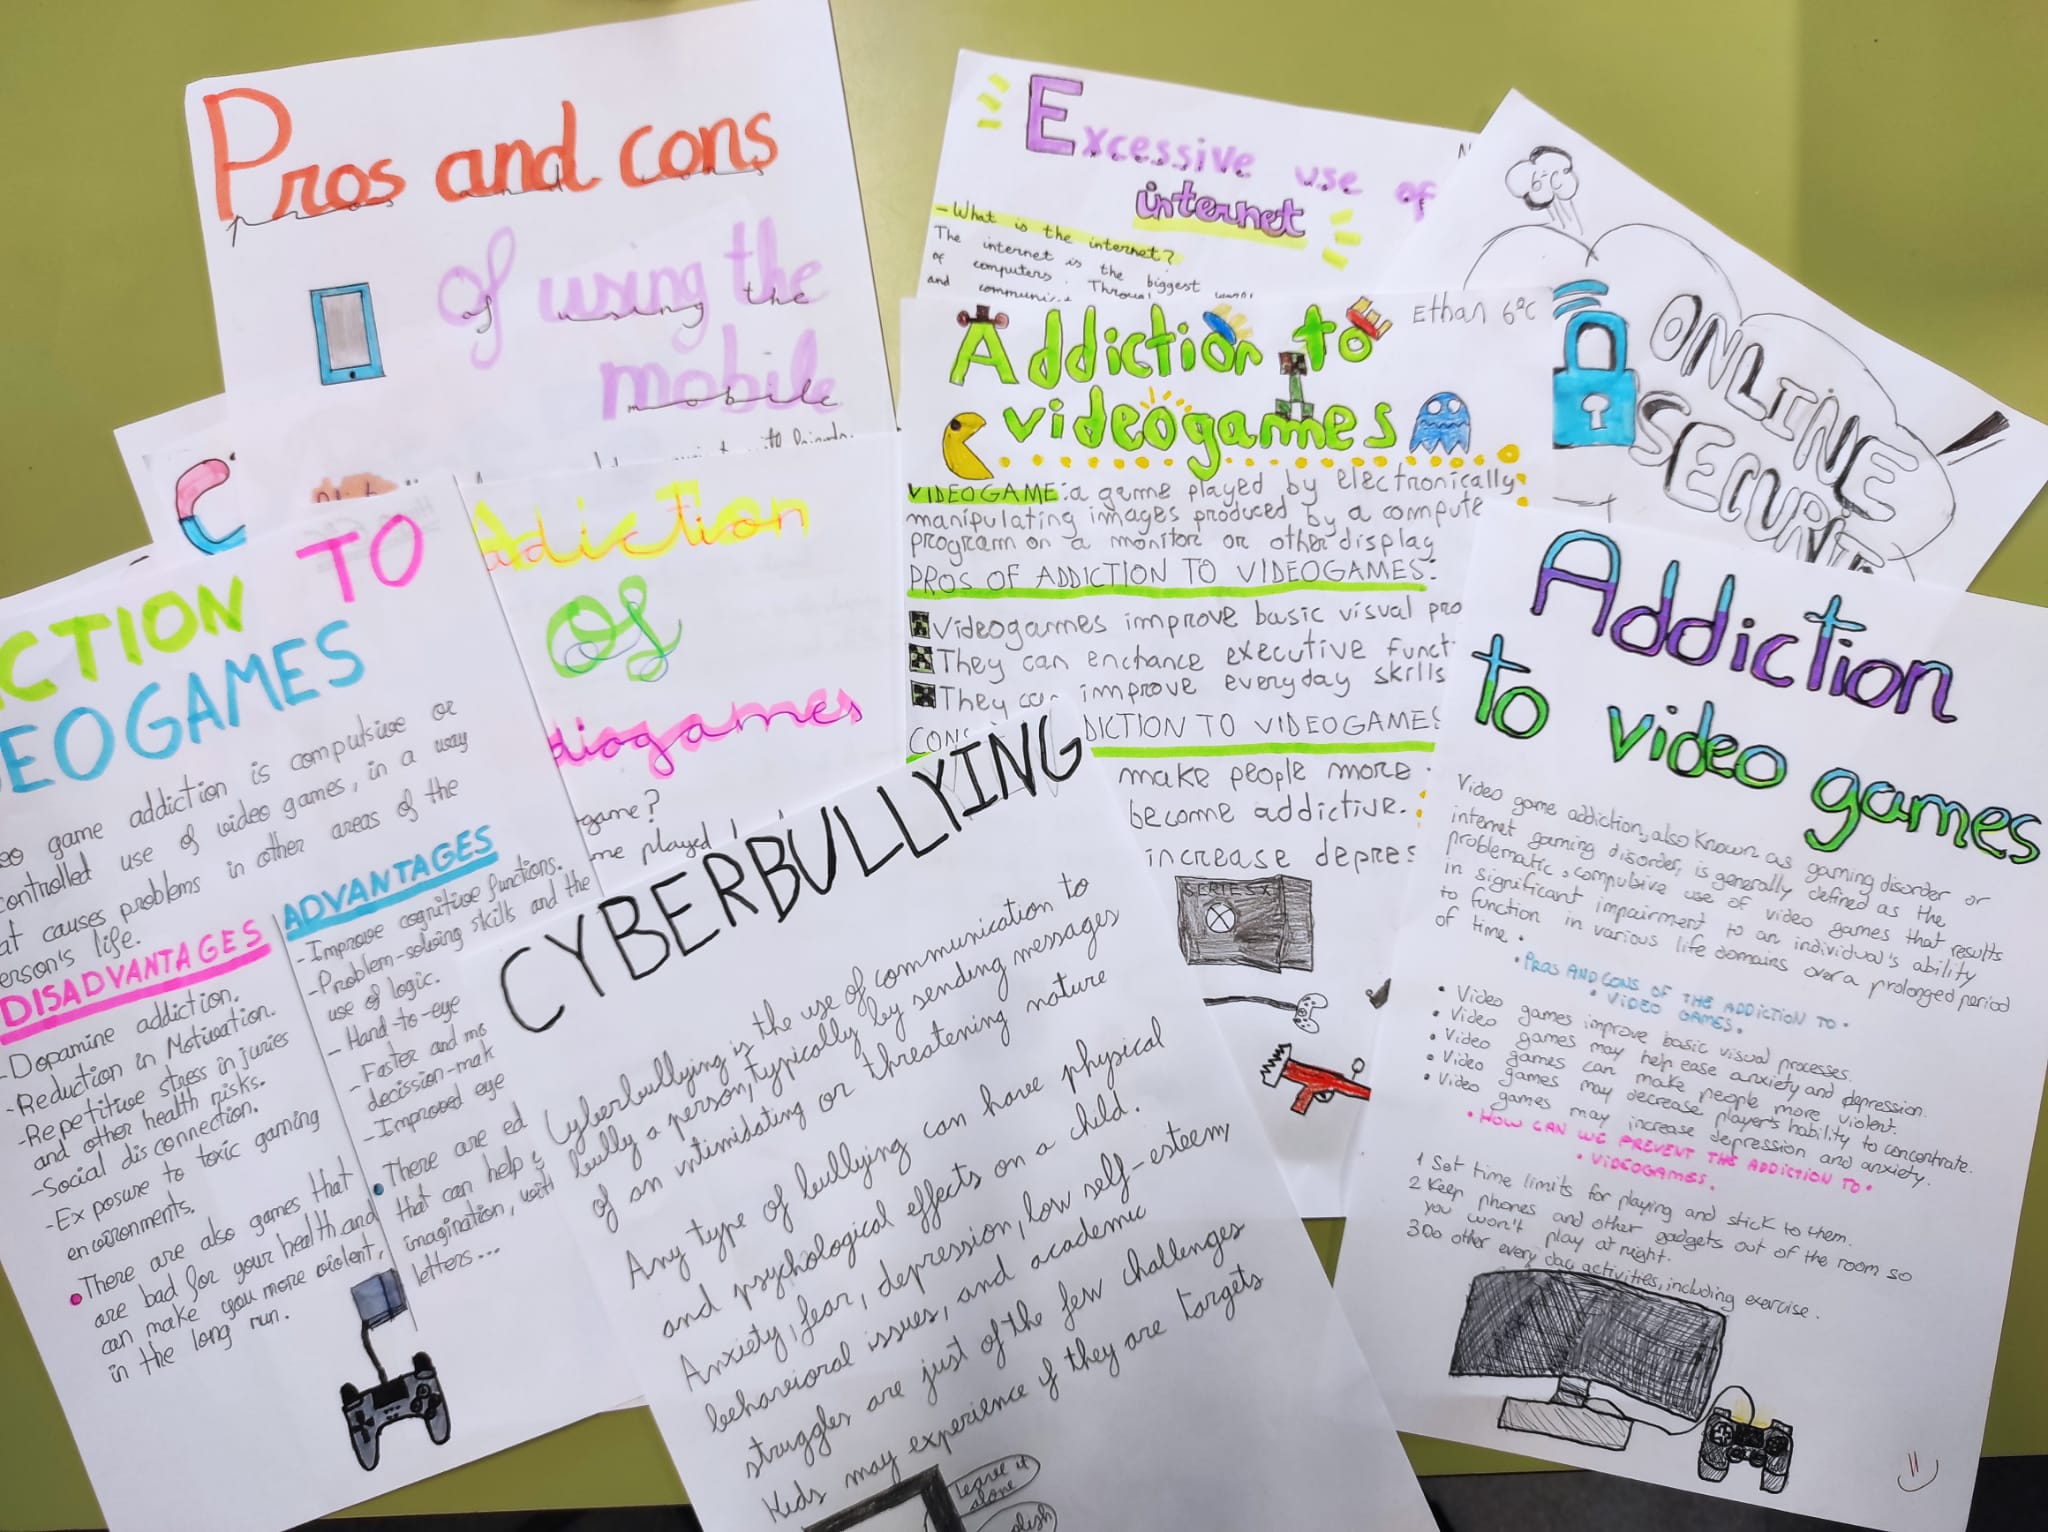 Pros and cons
of using the
mobile
Excessive use of
internet
- What is the internet?
The internet is the biggest
of computers. Throu
and communi
6ºC
ONLINE
SECURIT
Ethan 6ºC
Addiction to
videogames
VIDEOGAME: a game played by electronically
manipulating images produced by a compute
program on a monitor or other display
PROS OF ADDICTION TO VIDEOGAMES:
Videogames improve basic visual pro
They can enchance executive funct
They can improve everyday skills
CONS DICTION TO VIDEOGAMES
make people more
become addictive.
increase depres
SERIES X
CTION TO
EOGAMES
eo game addiction is compulsive or
controlled use of video games, in a way
at causes problems in other areas of the
erson's life.
DISADVANTAGES
- Dopamine addiction.
- Reduction in Motivation.
- Repetitive stress in juries
and other health risks.
- Social disconnection.
- Exposure to toxic gaming
environments.
• There are also games that
are bad for your health and
can make you more violent,
in the long run.
ADVANTAGES
- Improve cognitive functions.
- Problem-solving skills and the
use of logic.
- Hand-to-eye
- Faster and mo
decission-mak
- Improved eye
• There are ed
that can help
imagination, with
letters...
Adiction
Of
diogames
game?
me played
CYBERBULLYING
Cyberbullying is the use of communication to
bully a person, typically by sending messages
of an intimidating or threatening nature
Any type of bullying can have physical
and psychological effects on a child.
Anxiety, fear, depression, low self-esteem,
behavioral issues, and academic
struggles are just of the few challenges
Kids may experience if they are targets
leave it
alone
Addiction
to video games
Video game addiction, also known as gaming disorder or
internet gaming disorder, is generally defined as the
problematic, compulsive use of video games that results
in significant impairment to an individual's ability
to function in various life domains over a prolonged period
of time.
• PROS AND CONS OF THE ADDICTION TO •
• VIDEO GAMES •
• Video games improve basic visual processes.
• Video games may help ease anxiety and depression.
• Video games can make people more violent.
• Video games may decrease player's hability to concentrate.
• Video games may increase depression and anxiety.
• HOW CAN WE PREVENT THE ADDICTION TO •
• VIDEOGAMES.
1 Set time limits for playing and stick to them.
2 Keep phones and other gadgets out of the room so
you won't play at night.
3 Do other every day activities, including exercise.